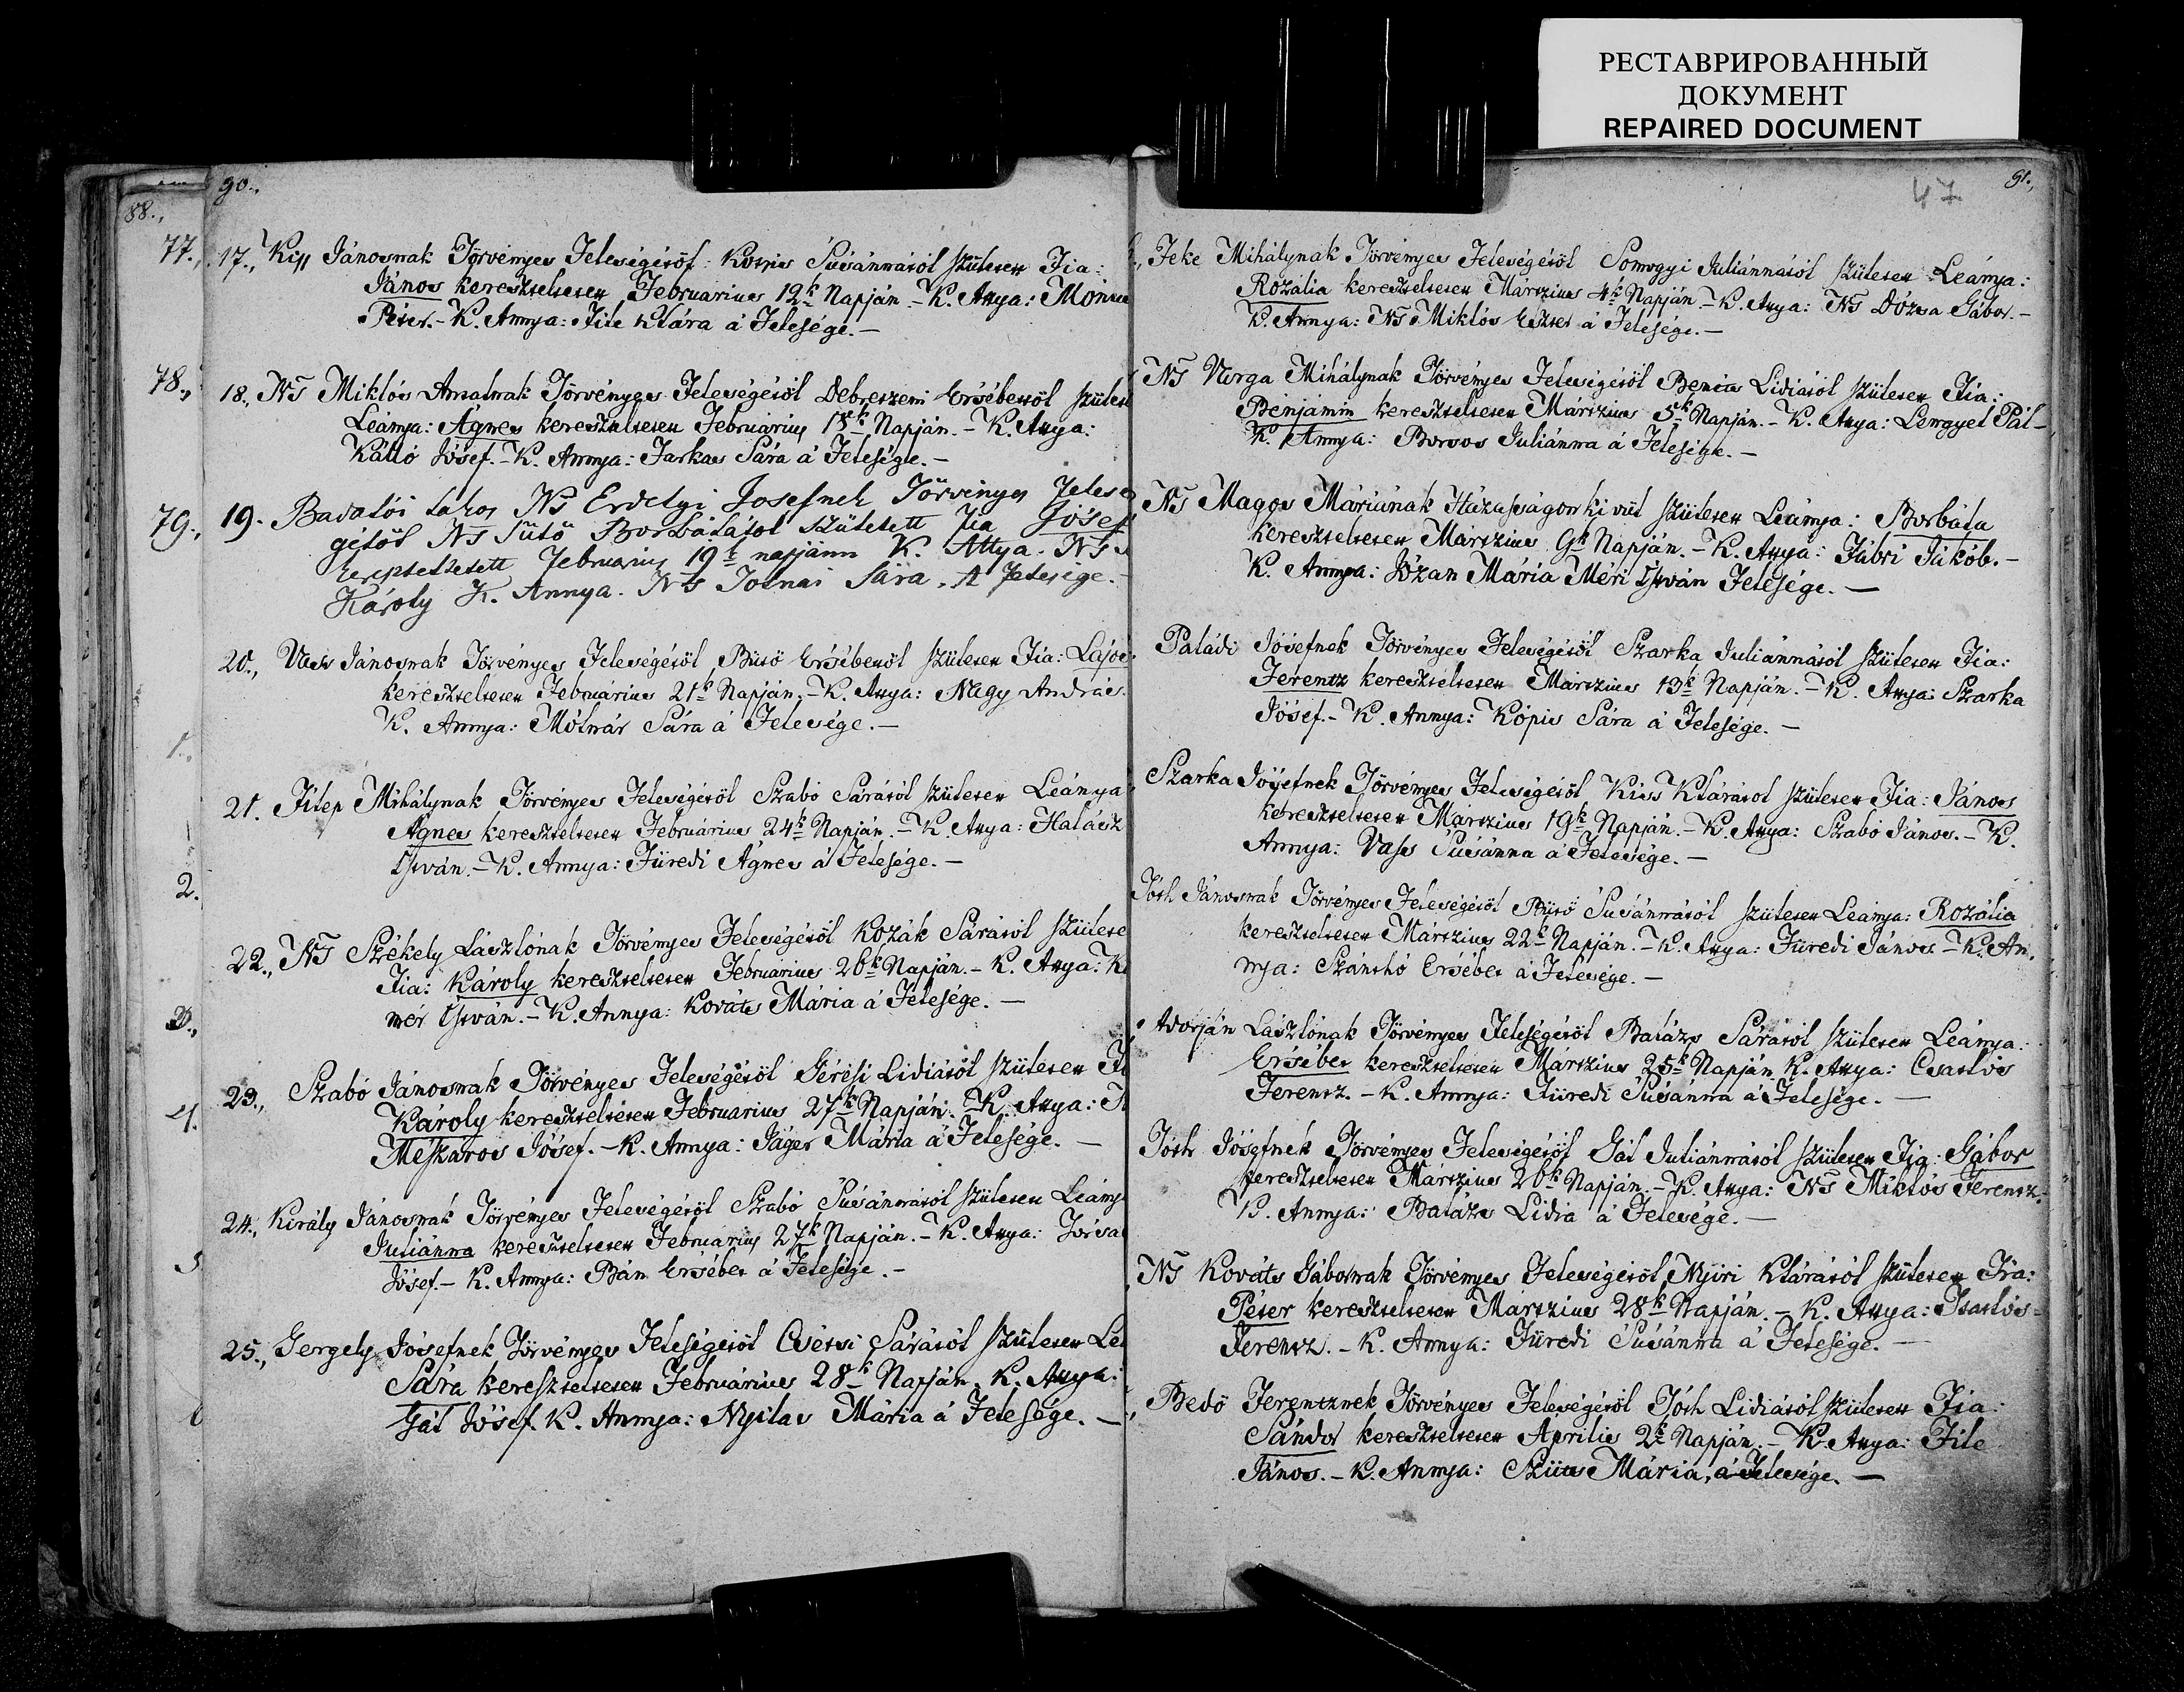 РЕСТАВРИРОВАННЫЙ
ДОКУМЕНТ
REPAIRED DOCUMENT
88.,
77.,
78.,
79.,
1.,
2.
4.
5
90.,
17., Kiss Jánosnak Törvényes Feleségétöl: Susánnától született Fia:
János kereszteltetett Februarius 12k Napján. – K. Attya:
Péter. – K. Annya: File Klára á Felesége. –
18., NS Miklós Antalnak Törvényes Feleségétöl Debretzeni Ersébettöl szület
Leánya: Ágnes kereszteltetett Februarius 15k Napján. – K. Attya:
Kálló Jósef. – K. Annya: Farkas Sára á Felesége. –
19. Badalói Lakos NS Erdelyi Josefnek Törvényes Felese
gétöl NS Sütö Borbálától született fia Jósef
kereszteltetett Februarius 19k napjánn K. Attya. NS
Károly K. Annya. NS Tolnai Sára. A Felesége. –
20., Vass Jánosnak Törvényes Feleségétöl Büsö Ersébettöl született Fia: Lajos
kereszteltetett Februárius 21k Napján. – K. Attya: Nagy András.
K. Annya: Mólnár Sára á Felesége. –
21. Fülep Mihálynak Törvényes Feleségétöl Szabó Sárától született Leánya
Ágnes kereszteltetett Februárius 24k Napján. – K. Attya: Halász
István. – K. Annya: Füredi Ágnes á Felesége. –
22., NS Székely Lászlónak Törvényes Feleségétöl Kozák Sárától születe
Fia: Károly kereszteltetett Februarius 26k Napján. – K. Attya:
mer István. – K. Annya: Kováts Mária á Felesége. –
23., Szabó Jánosnak Törvényes Feleségétöl Gérési Lidiától született
Károly kereszteltetett Februarius 27k Napján. – K. Attya:
Mészáros Jósef. – K. Annya: Jáger Mária á Felesége. –
24., Király Jánosnak Törvényes Feleségétöl Szabó Susánnától született Leány
Juliánna kereszteltetett Februarius 27k Napján. – K. Attya:
Jósef. – K. Annya: Bán Ersébet á Felesége. –
25., Gergely Jósefnek Törvényes Feleségétöl Sárától született Le
Sára kereszteltetett Februárius 28k Napján. K. Attya:
Gát Jósef. K. Annya: Nyilas Mária á Felesége. –
47
91.,
Feke Mihálynak Törvényes Feleségétöl Somogyi Juliánnától született Leánya:
Rozália kereszteltetett Mártzius 4k Napján. – K. Attya: NS Dózsa Gábor. –
K. Annya: NS Miklós Eszter á Felesége. –
NS Varga Mihálynak Törvényes Feleségétöl Lidiától született Fia:
Benjámin kereszteltetett Mártzius 5k Napján. – K. Attya: Lengyel Pál –
K. Annya: Borsos Juliánna á Felesége. –
NS Magos Máriának Házasságonkivül született Leánya: Borbála
kereszteltetett Mártzius 9k Napján. – K. Attya: Fábri Jákób. –
K. Annya: Józan Mária Méri István Felesége. –
Paládi Jósefnek Törvényes Feleségétöl Szarka Juliánnától született Fia:
Ferentz kereszteltetett Mártzius 13k Napján. – K. Attya: Szarka
Jósef. – K. Annya: Kópis Sára á Felesége. –
Szarka Jósefnek Törvényes Feleségétöl Kiss Klárától született Fia: János
kereszteltetett Mártzius 19k Napján. – K. Attya: Szabó János. – K.
Annya: Vass Susánna á Felesége. –
Tóth Jánosnak Törvényes Feleségétöl Büsö Susánnától született Leánya: Rozália
kereszteltetett Mártzius 22k Napján. – K. Attya: Füredi János – K. An,
nya: Szánthó Ersébet á Felesége. –
Adorján Lászlónak Törvényes Feleségétöl Balázs Sárától született Leánya:
Ersébet kereszteltetett Mártzius 25k Napján K. Attya: Csatlós
Ferentz. – K. Annya: Füredi Susánna á Felesége. –
Tóth Jósefnek Törvényes Feleségétöl Gát Juliánnától született Fia: Gábor
kereszteltetett Mártzius 26k Napján. – K. Attya: NS Miklós Ferentz. –
K. Annya: Balázs Lidia á Felesége. –
NS Kováts Gábornak Törvényes Feleségétöl Nyiri Klárától született Fia:
Péter kereszteltetett Mártzius 28k Napján. – K. Attya: Tsatlós
Ferentz. – K. Annya: Füredi Susánna á Felesége. –
Bedö Ferentznek Törvényes Feleségétöl Tóth Lidiától született Fia:
Sándor kereszteltetett Április 2k Napján. – K. Attya: File
János. – K. Annya: Szüts Mária, á Felesége. –